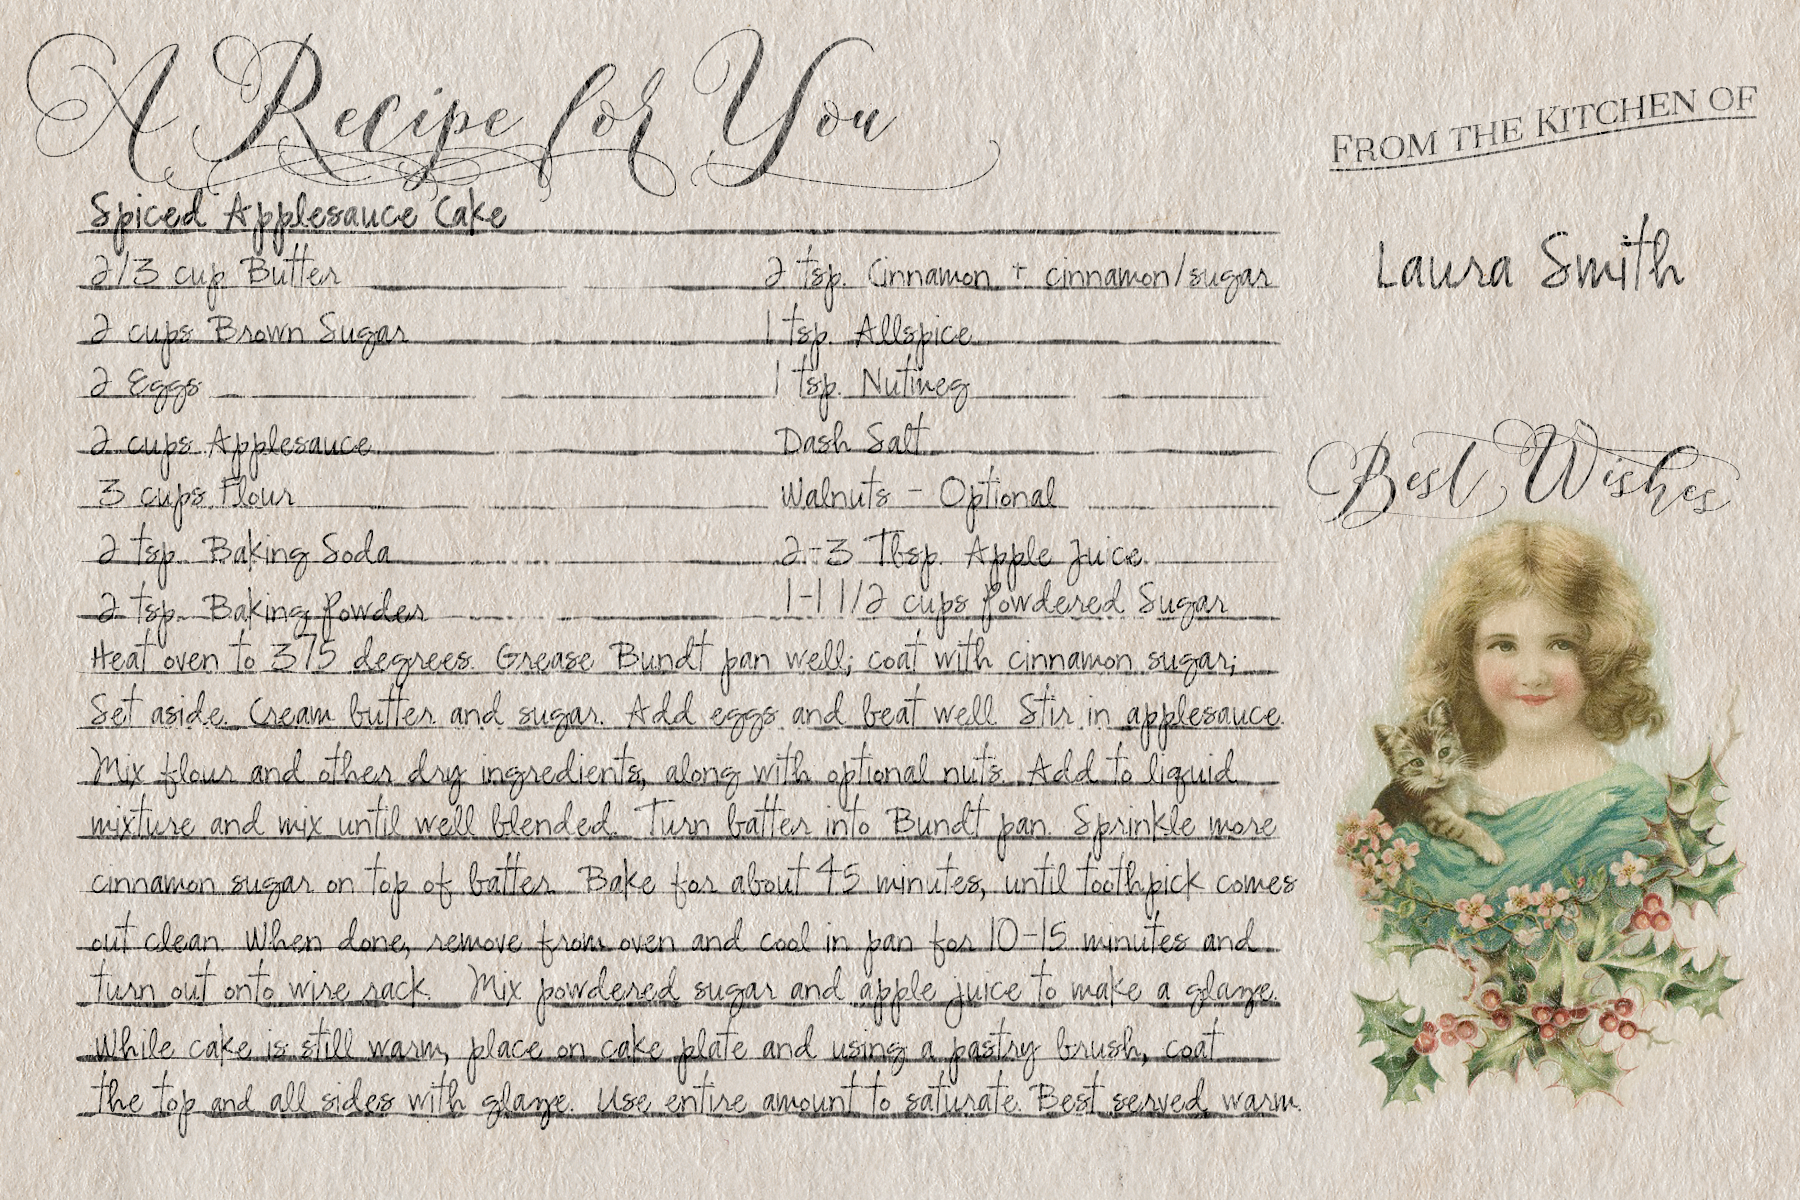 A Recipe for You
FROM THE KITCHEN OF
Laura Smith
Spiced Applesauce Cake
2/3 cup Butter
2 cups Brown Sugar
2 Eggs
2 cups Applesauce
3 cups Flour
2 tsp. Baking Soda
2 tsp. Baking Powder
2 tsp. Cinnamon + cinnamon/sugar
1 tsp. Allspice
1 tsp. Nutmeg
Dash Salt
Walnuts - Optional
2-3 Tbsp. Apple Juice
1-1 1/2 cups Powdered Sugar
Heat oven to 375 degrees. Grease Bundt pan well; coat with cinnamon sugar;
Set aside. Cream butter and sugar. Add eggs and beat well. Stir in applesauce.
Mix flour and other dry ingredients, along with optional nuts. Add to liquid
mixture and mix until well blended. Turn batter into Bundt pan. Sprinkle more
cinnamon sugar on top of batter. Bake for about 45 minutes, until toothpick comes
out clean. When done, remove from oven and cool in pan for 10-15 minutes and
turn out onto wire rack. Mix powdered sugar and apple juice to make a glaze.
While cake is still warm, place on cake plate and using a pastry brush, coat
the top and all sides with glaze. Use entire amount to saturate. Best served warm.
Best Wishes